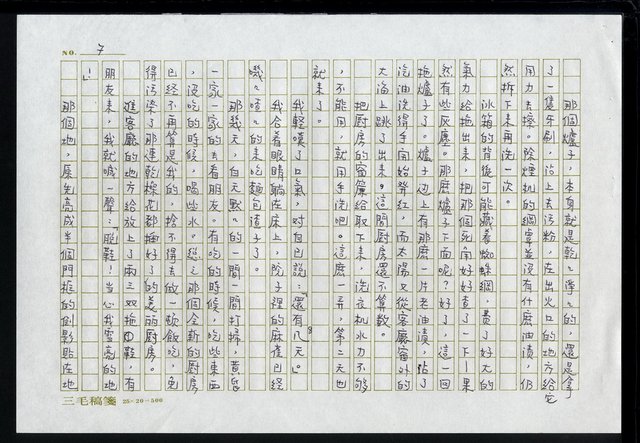 NO. 7
那個爐子，本身就是乾乾淨淨的，還是拿
了一隻牙刷，沾上去污粉，在出火口的地方給它
用力去擦。除煙机的網罩並沒有什麼油漬，仍
然拆下來再洗一次。
冰箱的背後可能藏着蜘蛛網，費了好大的
氣力給拖出來，把那個死角好好查了一下—果
然有些灰塵。那麼爐子下面呢？好了，這一回
拖爐子了。爐子边上有那麼一片老油漬，貼了
汽油洗得手開始發紅，而太陽又從客廳窗外的
大海上跳了出來。這間廚房還不算數。
把厨房的窗簾給取下來，洗衣机水力不够
，不能用，就用手洗吧。這麼一弄，第二天也
就來了。
我輕嘆了口氣，對自己說：「還有八天。」
我合着眼睛躺在床上，院子裡的麻雀已經
嘰嘰喳喳的來吃麵包渣子了。
那幾天，白天默默的一間一間打掃，黃昏
一家一家的去看朋友。有吃的時候，吃些東西
，沒吃的時候，喝些水。總之那個全新的厨房
已經不再算是我的，捨不得去做一頓飯吃，免
得污染了那連乾燥花都插好了的美丽厨房。
進客廳的地方給放上了兩三双拖鞋，有
朋友來，我就喊一聲：「脫鞋！当心我雪亮的地
！」
那個地，果先亮成半個門框的倒影貼在地
三毛稿箋 25×20=500